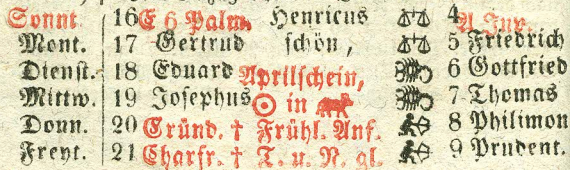 Sonnt. 16 E 6 Palm. Henricus 4 A Jur.
Mont. 17 Gertrud schön, 5 Friedrich
Dienst. 18 Eduard Aprilschein, 6 Gottfried
Mittw. 19 Josephus ☉ in 7 Thomas
Donn. 20 Gründ. † Frühl. Anf. 8 Philimon
Freyt. 21 Charfr. † T. u. N. gl. 9 Prudent.